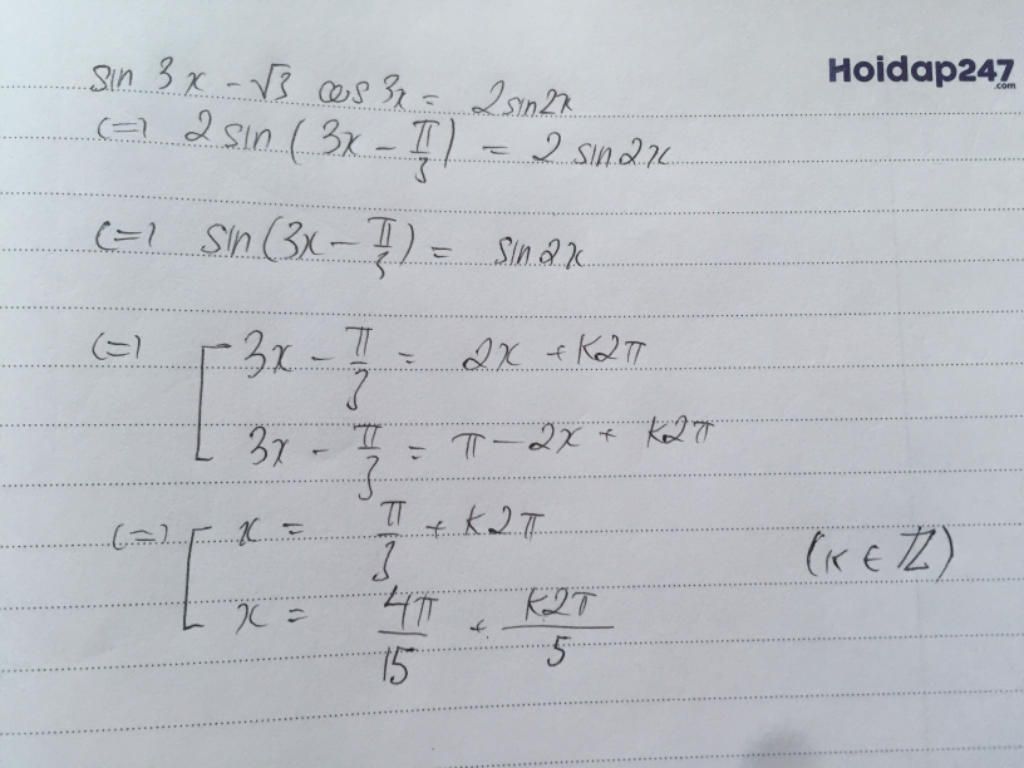 Hoidap247
.com
sin 3x - √3 cos 3x = 2 sin 2x
(=) 2 sin ( 3x - π/3 ) = 2 sin 2x
(=) sin (3x - π/3) = sin 2x
(=) [ 3x - π/3 = 2x + K2π
3x - π/3 = π - 2x + K2π
(=) [ x = π/3 + K2π (K ∈ ℤ)
x = 4π/15 + K2π/5